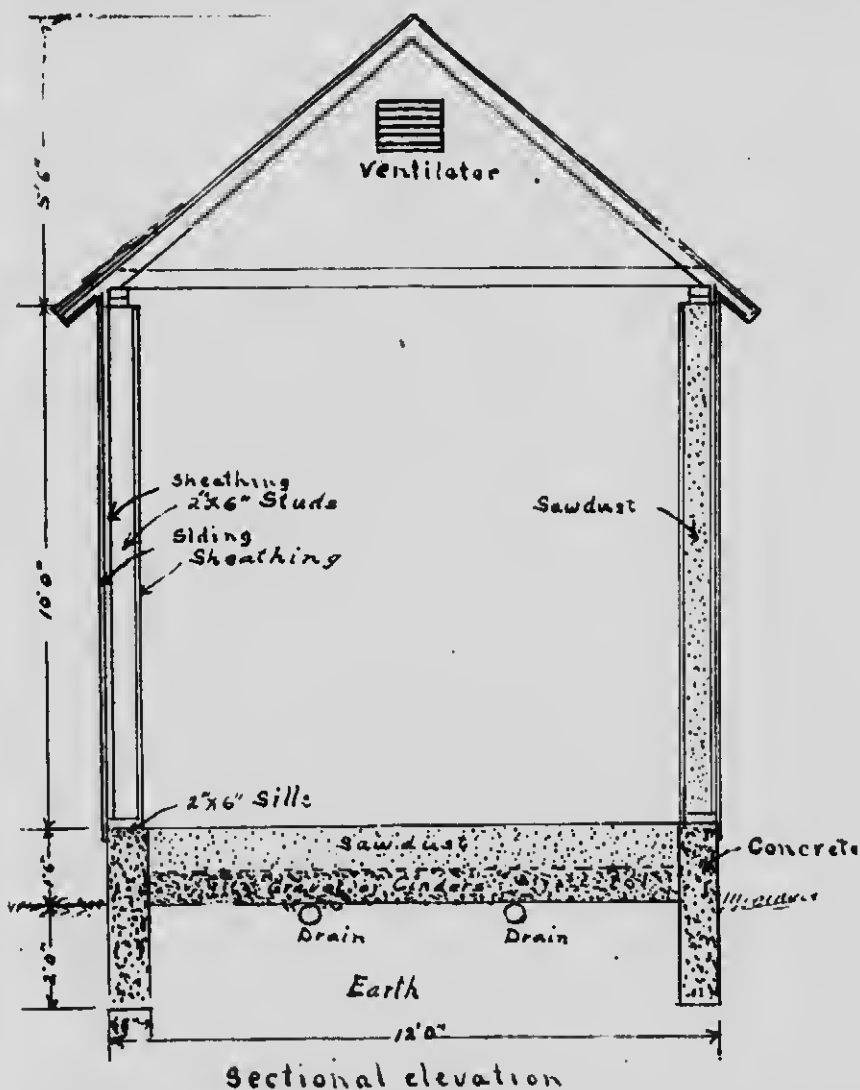 Ventilator
5'6"
Sheathing
2"x6" Studs
Siding
Sheathing
Sawdust
10'0"
2"x6" Sills
Sawdust
Concrete
1'6"
Gravel or Cinders
Drain
Drain
2'0"
Earth
8"
12'0"
Sectional elevation